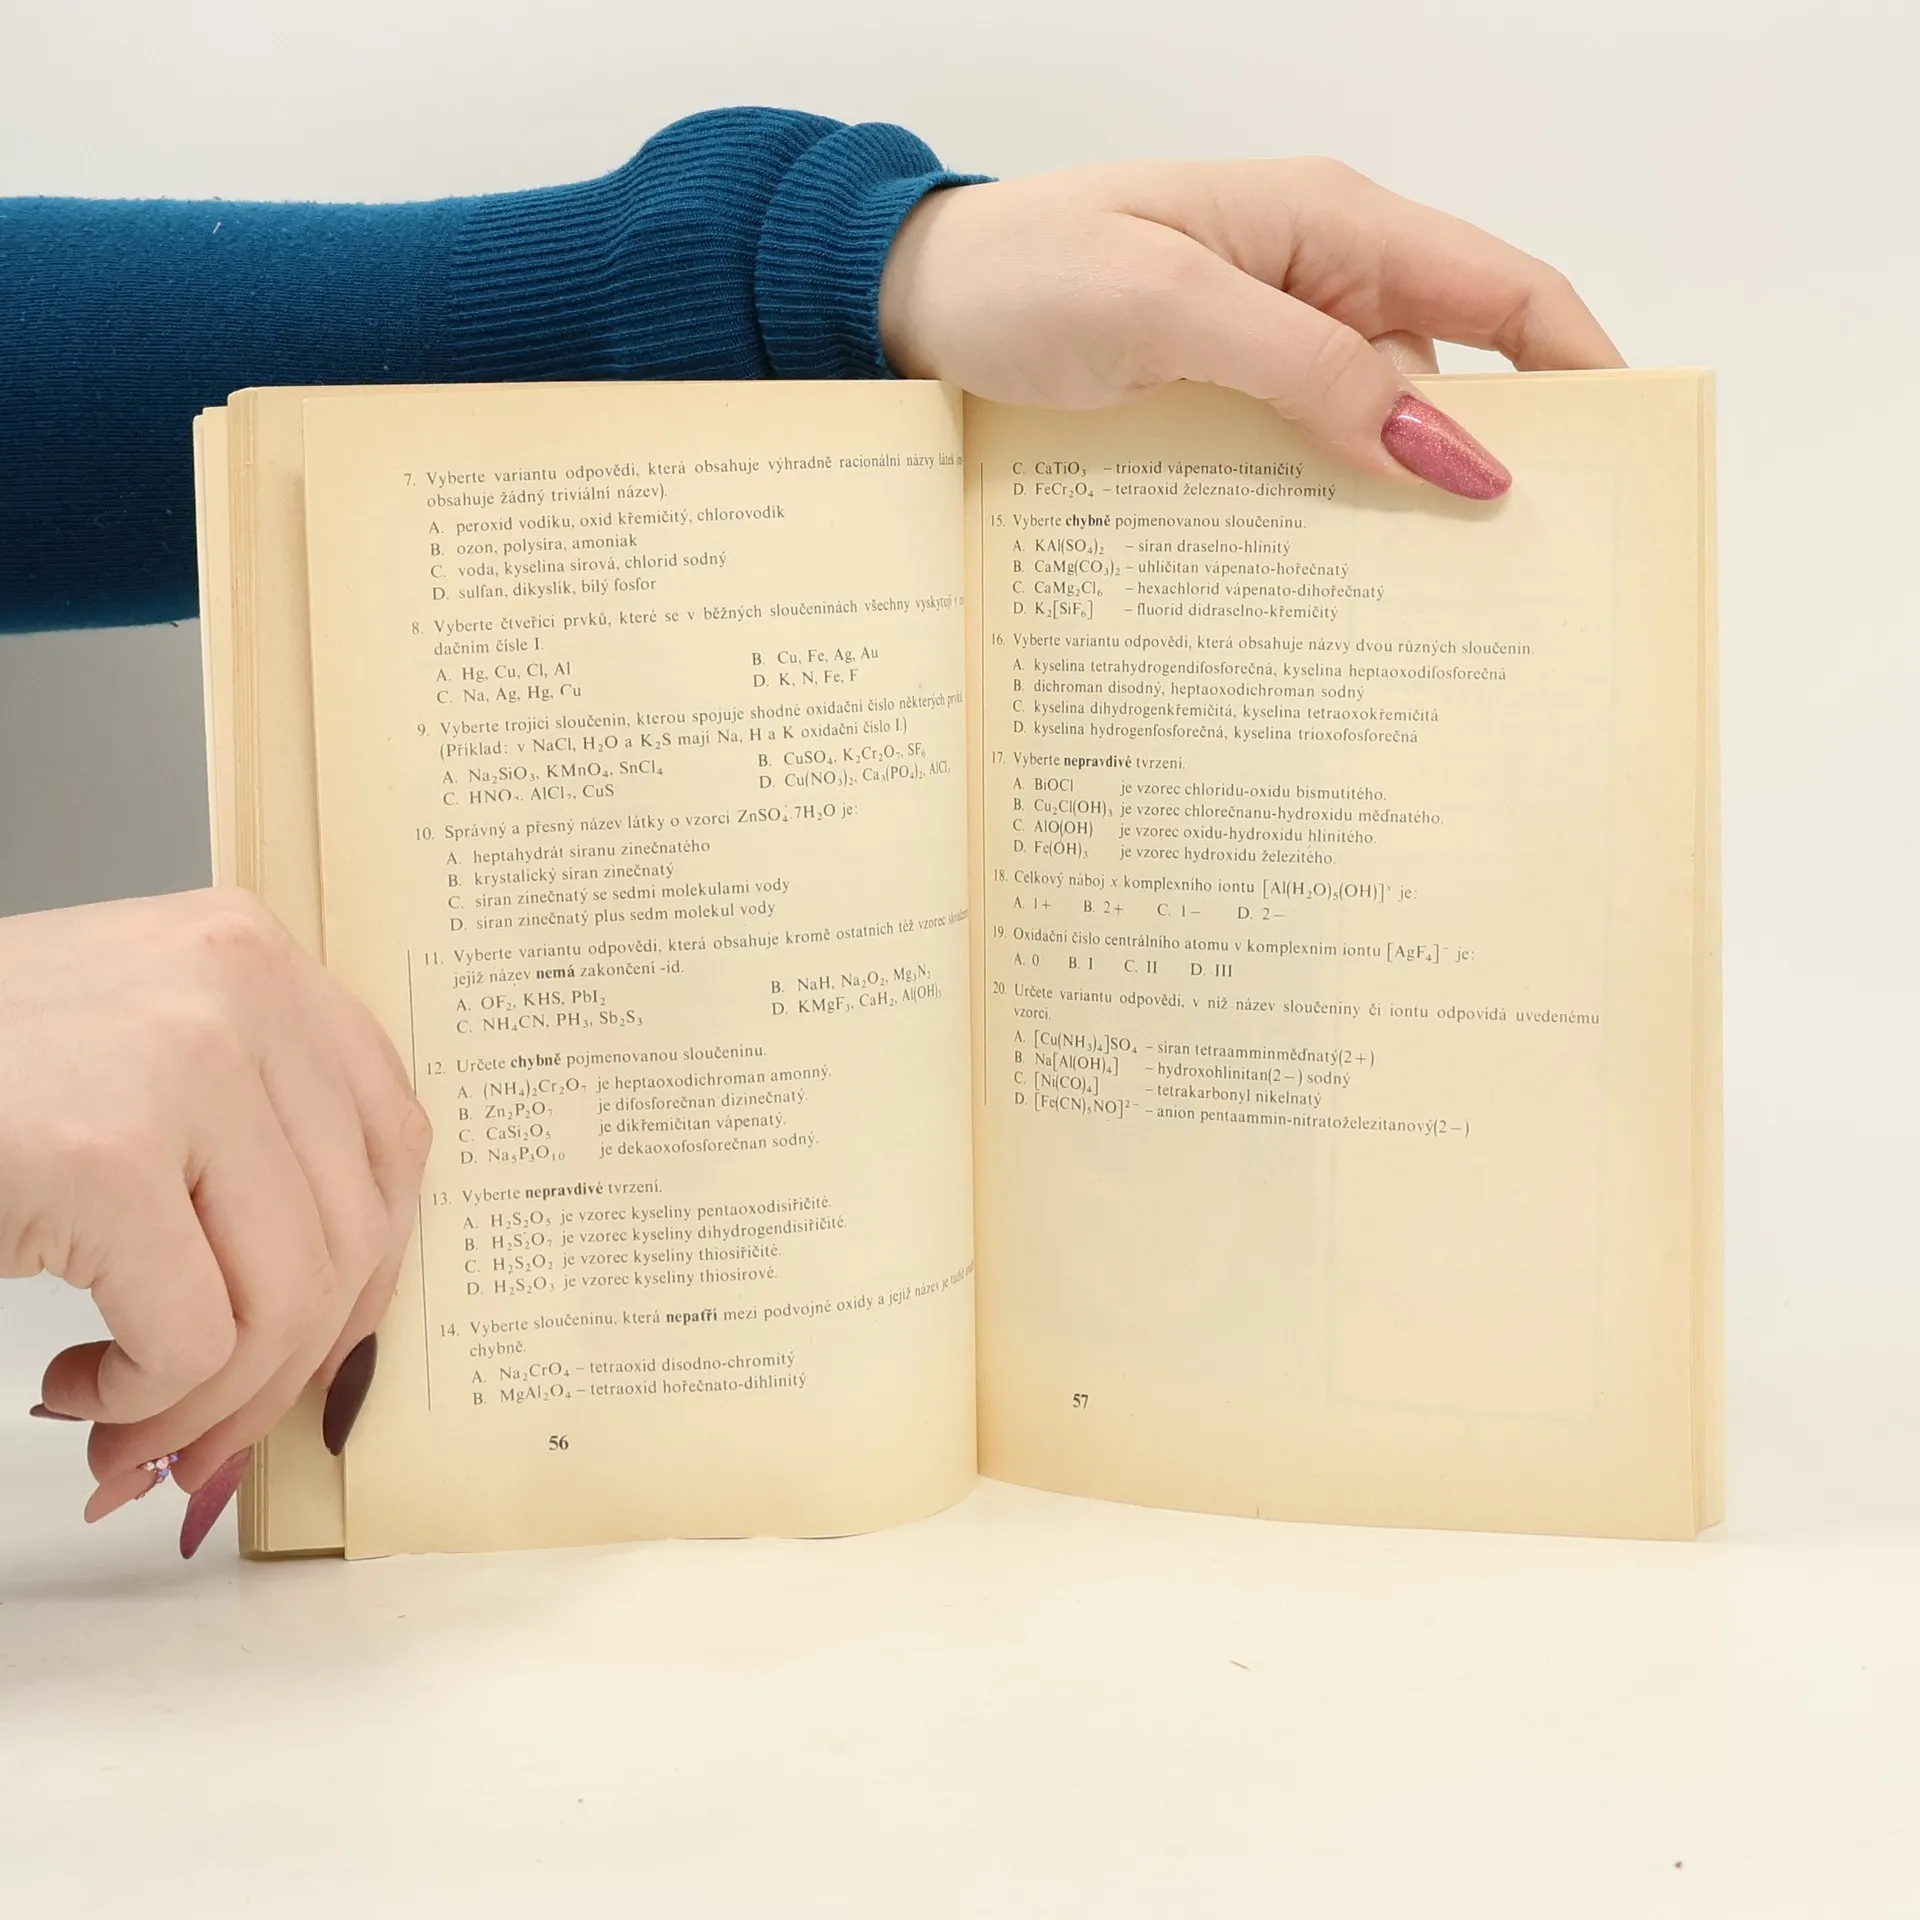 7. Vyberte variantu odpovědi, která obsahuje výhradně racionální názvy látek
obsahuje žádný triviální název).
A. peroxid vodíku, oxid křemičitý, chlorovodík
B. ozon, polysíra, amoniak
C. voda, kyselina sírová, chlorid sodný
D. sulfan, dikyslík, bílý fosfor
8. Vyberte čtveřici prvků, které se v běžných sloučeninách všechny vyskytují v
dačním čísle I.
A. Hg, Cu, Cl, Al
B. Cu, Fe, Ag, Au
C. Na, Ag, Hg, Cu
D. K, N, Fe, F
9. Vyberte trojici sloučenin, kterou spojuje shodné oxidační číslo některých prvků
(Příklad: v NaCl, H₂O a K₂S mají Na, H a K oxidační číslo I.)
A. Na₂SiO₃, KMnO₄, SnCl₄
B. CuSO₄, K₂Cr₂O₇, SF₆
C. HNO₃, AlCl₃, CuS
D. Cu(NO₃)₂, Ca₃(PO₄)₂, AlCl₃
10. Správný a přesný název látky o vzorci ZnSO₄.7H₂O je:
A. heptahydrát síranu zinečnatého
B. krystalický síran zinečnatý
C. síran zinečnatý se sedmi molekulami vody
D. síran zinečnatý plus sedm molekul vody
11. Vyberte variantu odpovědi, která obsahuje kromě ostatních též vzorec
jejíž název nemá zakončení -id.
A. OF₂, KHS, PbI₂
B. NaH, Na₂O₂, Mg₃N₂
C. NH₄CN, PH₃, Sb₂S₃
D. KMgF₃, CaH₂, Al(OH)₃
12. Určete chybně pojmenovanou sloučeninu.
A. (NH₄)₂Cr₂O₇ je heptaoxodichroman amonný.
B. Zn₂P₂O₇ je difosforečnan dizinečnatý.
C. CaSi₂O₅ je dikřemičitan vápenatý.
D. Na₅P₃O₁₀ je dekaoxofosforečnan sodný.
13. Vyberte nepravdivé tvrzení.
A. H₂S₂O₅ je vzorec kyseliny pentaoxodisiřičité.
B. H₂S₂O₇ je vzorec kyseliny dihydrogendisiřičité.
C. H₂S₂O₂ je vzorec kyseliny thiosiřičité.
D. H₂S₂O₃ je vzorec kyseliny thiosírové.
14. Vyberte sloučeninu, která nepatří mezi podvojné oxidy a jejíž název je tudíž
chybně.
A. Na₂CrO₄ – tetraoxid disodno-chromitý
B. MgAl₂O₄ – tetraoxid hořečnato-dihlinitý
56
C. CaTiO₃ – trioxid vápenato-titaničitý
D. FeCr₂O₄ – tetraoxid železnato-dichromitý
15. Vyberte chybně pojmenovanou sloučeninu.
A. KAl(SO₄)₂ – síran draselno-hlinitý
B. CaMg(CO₃)₂ – uhličitan vápenato-hořečnatý
C. CaMg₂Cl₆ – hexachlorid vápenato-dihořečnatý
D. K₂[SiF₆] – fluorid didraselno-křemičitý
16. Vyberte variantu odpovědi, která obsahuje názvy dvou různých sloučenin.
A. kyselina tetrahydrogendifosforečná, kyselina heptaoxodifosforečná
B. dichroman disodný, heptaoxodichroman sodný
C. kyselina dihydrogenkřemičitá, kyselina tetraoxokřemičitá
D. kyselina hydrogenfosforečná, kyselina trioxofosforečná
17. Vyberte nepravdivé tvrzení.
A. BiOCl je vzorec chloridu-oxidu bismutitého.
B. Cu₂Cl(OH)₃ je vzorec chlorečnanu-hydroxidu měďnatého.
C. AlO(OH) je vzorec oxidu-hydroxidu hlinitého.
D. Fe(OH)₃ je vzorec hydroxidu železitého.
18. Celkový náboj x komplexního iontu [Al(H₂O)₅(OH)]ˣ je:
A. 1+ B. 2+ C. 1– D. 2–
19. Oxidační číslo centrálního atomu v komplexním iontu [AgF₄]⁻ je:
A. 0 B. I C. II D. III
20. Určete variantu odpovědi, v níž název sloučeniny či iontu odpovídá uvedenému
vzorci.
A. [Cu(NH₃)₄]SO₄ – síran tetraamminměďnatý(2+)
B. Na[Al(OH)₄] – hydroxohlinitan(2–) sodný
C. [Ni(CO)₄] – tetrakarbonyl nikelnatý
D. [Fe(CN)₅NO]²⁻ – anion pentaammin-nitratoželezitanový(2–)
57